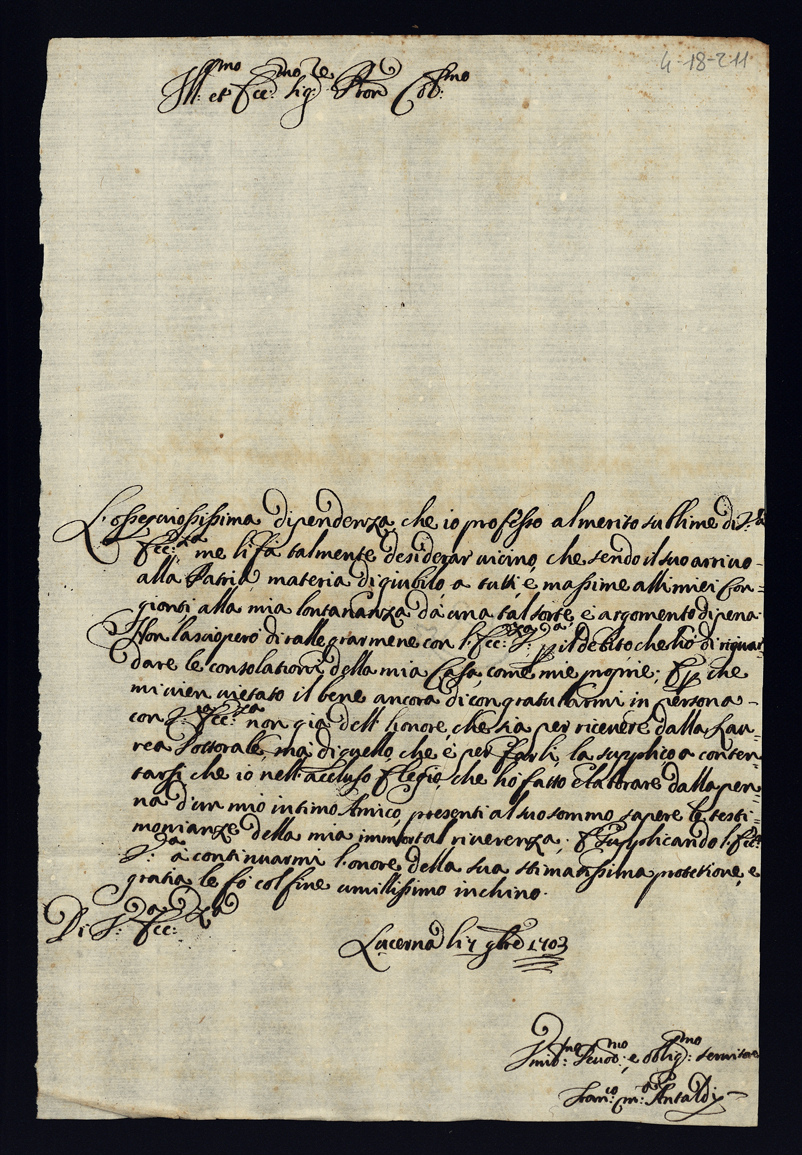 4-18-2-11
Ill:mo et Ecc:mo Sig:re Pron Col:mo
L'ossequiosissima dipendenza, che io professo al merito sublime di V:ra
Ecc:za me li fà talmente desiderar vicino, che sendo il suo arrivo
alla Patria, materia di giubilo, a tutti, e massime alli miei Con=
gionti, alla mia lontananza dà una tal sorte, e argomento di pena.
Non lascio però di rallegrarmene con l'Ecc:za V:ra p il debito che hò di riguar=
dare le consolationi della mia Casa, come mie proprie; E p che
mi vien vietato il bene ancora di congratullarmi in persona
con V:ra Ecc:za non già dell'honore, che sia per ricevere dalla Lau=
rea Dottorale, mà di quello, che è per farli, la supplico a conten=
tarsi, che io nell'accluso Elegio, che hò fatto elaborare dalla pen=
na d'un mio intimo Amico, presenti al suo sommo sapere le testi=
monianze della mia immortal riverenza; E supplicando l'Ecc:za
V:ra à continuarmi l'onore della sua stimatissima protetione, e
gratia le fò col fine umillissimo inchino.
Di V:ra Ecc:za
Lucerna li 7 9bre 1703
Umil:mo Devot:mo e oblig:mo servitore
Fran:co M:a Antaldi